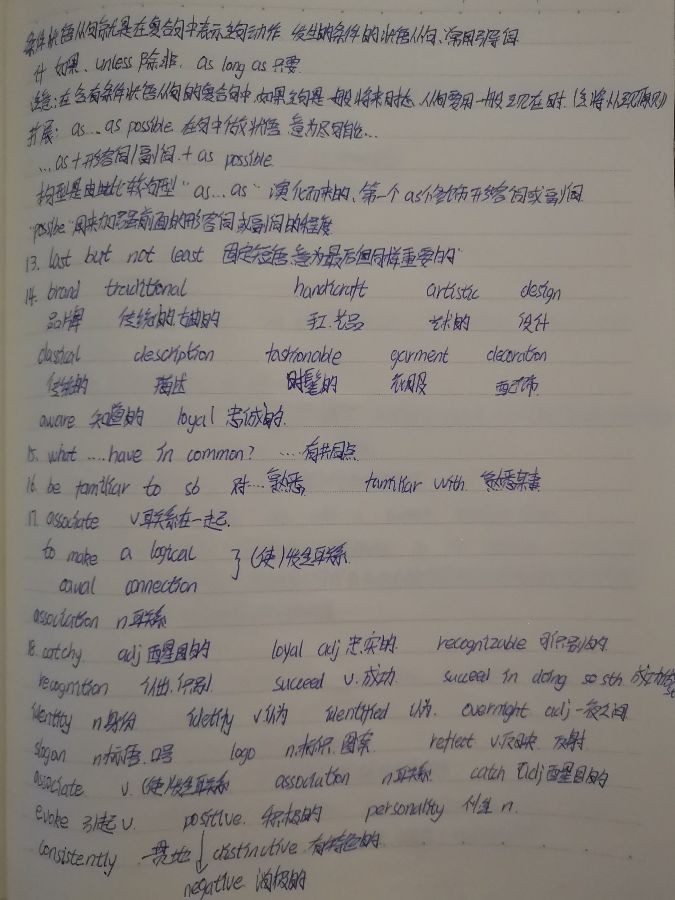 条件状语从句就是在复合句中表示主句动作发生的条件的状语从句、常用引导词
if 如果、unless 除非. as long as 只要.
注意:在含有条件状语从句的复合句中,如果主句是一般将来时态,从句要用一般现在时.(主将从现原则)
扩展: as...as possible 在句中做状语 意为尽可能...
...as+形容词/副词+as possible
构型是由比较句型"as...as"演化而来的、第一个as修饰形容词或副词.
"possibe"用来加强前面的形容词或副词的程度
13. last but not least 固定短语.意为最后但同样重要的"
14. brand traditional handicraft artistic design
品牌 传统的.古典的 手工艺品 艺术的 设计
classical description fashionable garment decoration
传统的 描述 时髦的 衣服 装饰
aware 知道的 loyal 忠诚的.
15. what ....have in common? ....有共同点
16. be familiar to sb 对...熟悉, familiar with. 熟悉某事
17. associate v联系在一起.
to make a logical } (使)发生联系
caual connection
association n联系
18. catchy adj 醒目的 loyal adj 忠实的. recognizable 可识别的.
recognition 认出.识别. succeed v.成功. succeed in doing so sth. 成功做
identity n身份 idetify v.认为 identified 认为. overnight adj 一夜之间
slogan n标语.口号 logo n.标识.图案 reflect v.反映.反射
associate v.(使)发生联系 association n联系 catch adj醒目的
evoke 引起v. positive. 积极的 personality 个性 n.
consistently 一贯地 distinctive 有特色的.
negative 消极的